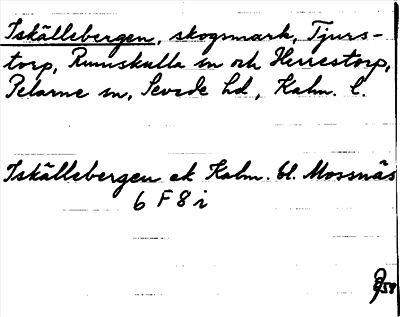 Iskällebergen, skogsmark, Tjurs-
torp, Rumskulla sn och Herrestorp,
Pelarne sn, Sevede hd, Kalm. l.
Iskällebergen ek Kalm. bl. Mossnäs
6 F 8 i